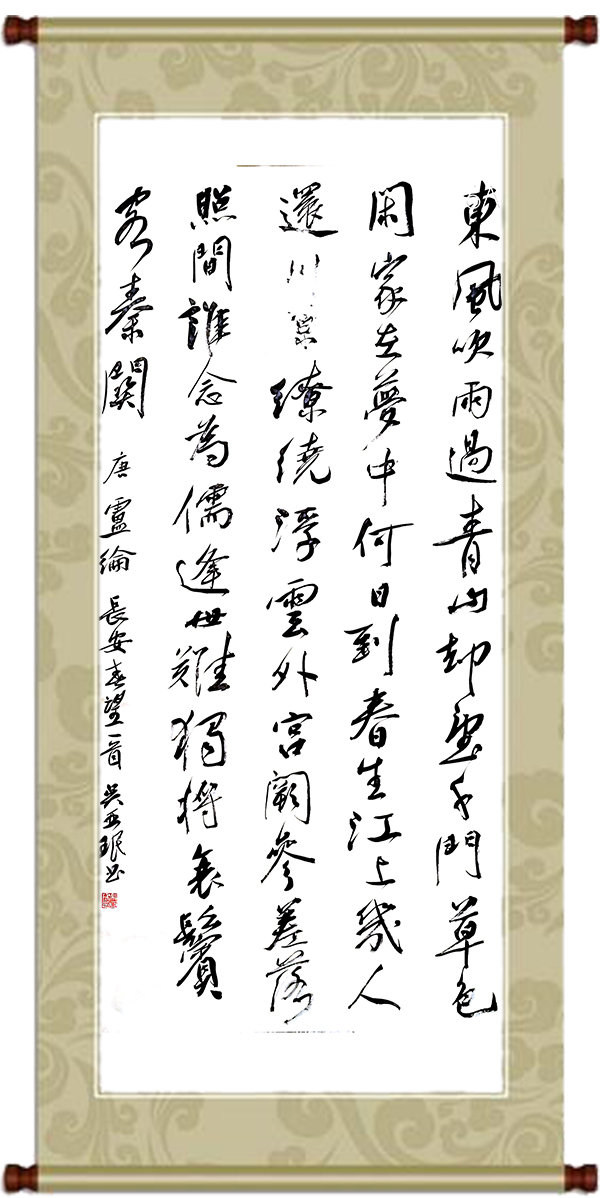 東風吹雨過青山却望千門草色
閑家在夢中何日到春生江上幾人
還川原繚繞浮雲外宮闕參差落
照間誰念為儒逢世難獨將衰鬢
客秦關 唐盧綸長安春望一首 吳亚珉书